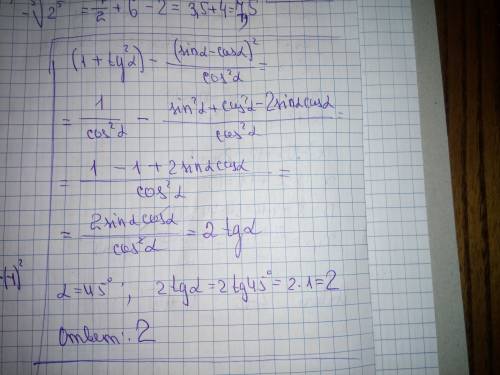 -∛2⁵ = 7/2 + 6 - 2 = 3,5 + 4 = 7,5
(1 + tg²α) - (sinα - cosα)²/cos²α =
= 1/cos²α - (sin²α + cos²α - 2sinαcosα)/cos²α =
= (1 - 1 + 2sinαcosα)/cos²α =
= 2sinαcosα/cos²α = 2tgα
α = 45° ; 2tgα = 2tg45° = 2·1 = 2
Ответ: 2